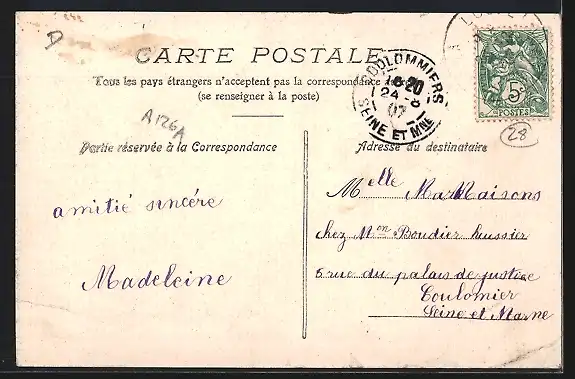 D
CARTE POSTALE
Tous les pays étrangers n'acceptent pas la correspondance
(se renseigner à la poste)
COULOMMIERS
18 20
24-8
07
SEINE ET MNE
5c
POSTES
28
A126A
Partie réservée à la Correspondance
Adresse du destinataire
amitié sincére
Madeleine
Melle
chez Mme Boudier huissier
5 rue du palais de justice
Coulomier
Seine et Marne